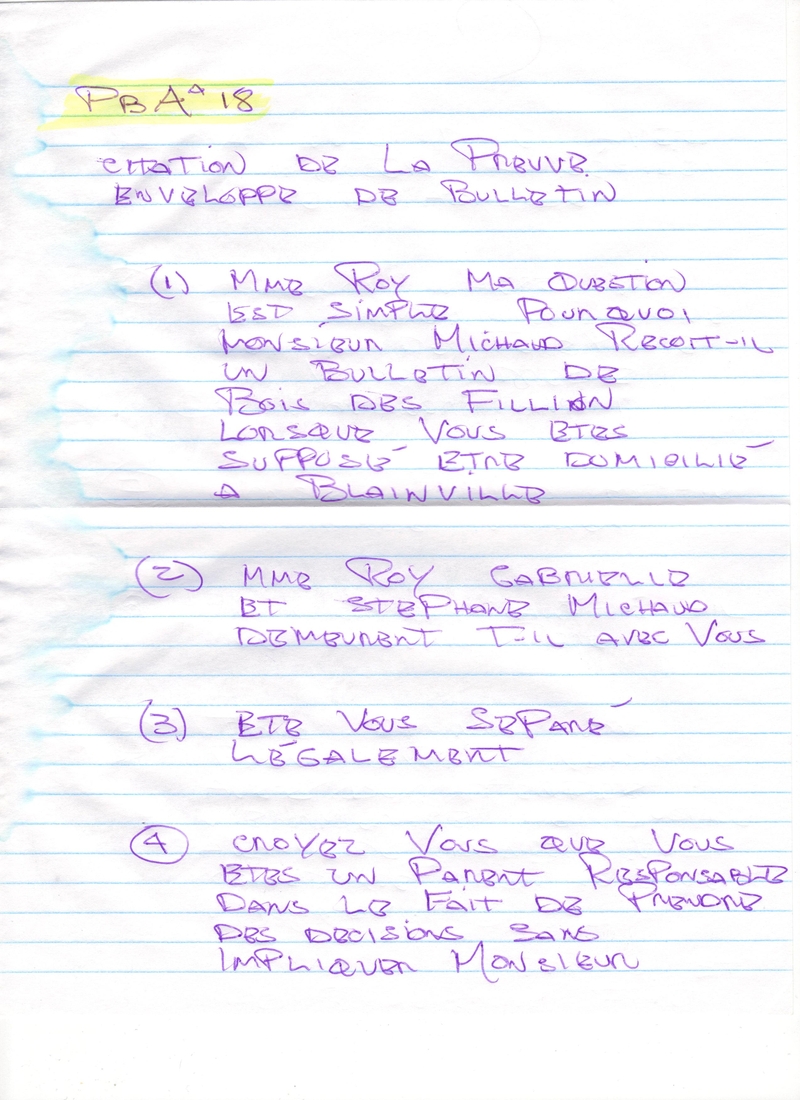 PB A△ 18
CITATION DE LA PREUVE
ENVELOPPE DE BULLETIN
(1) MME ROY MA QUESTION
EST SIMPLE POURQUOI
MONSIEUR MICHAUD RECOIT-IL
UN BULLETIN DE
BOIS DES FILLION
LORSQUE VOUS ETES
SUPPOSÉ ETRE DOMICILIÉ
A BLAINVILLE
(2) MME ROY GABRIELLE
ET STEPHANE MICHAUD
DEMEURENT T-IL AVEC VOUS
(3) ETE VOUS SEPARÉ
LÉGALEMENT
(4) CROYEZ VOUS QUE VOUS
ETES UN PARENT RESPONSABLE
DANS LE FAIT DE PRENDRE
DES DECISIONS SANS
IMPLIQUER MONSIEUR